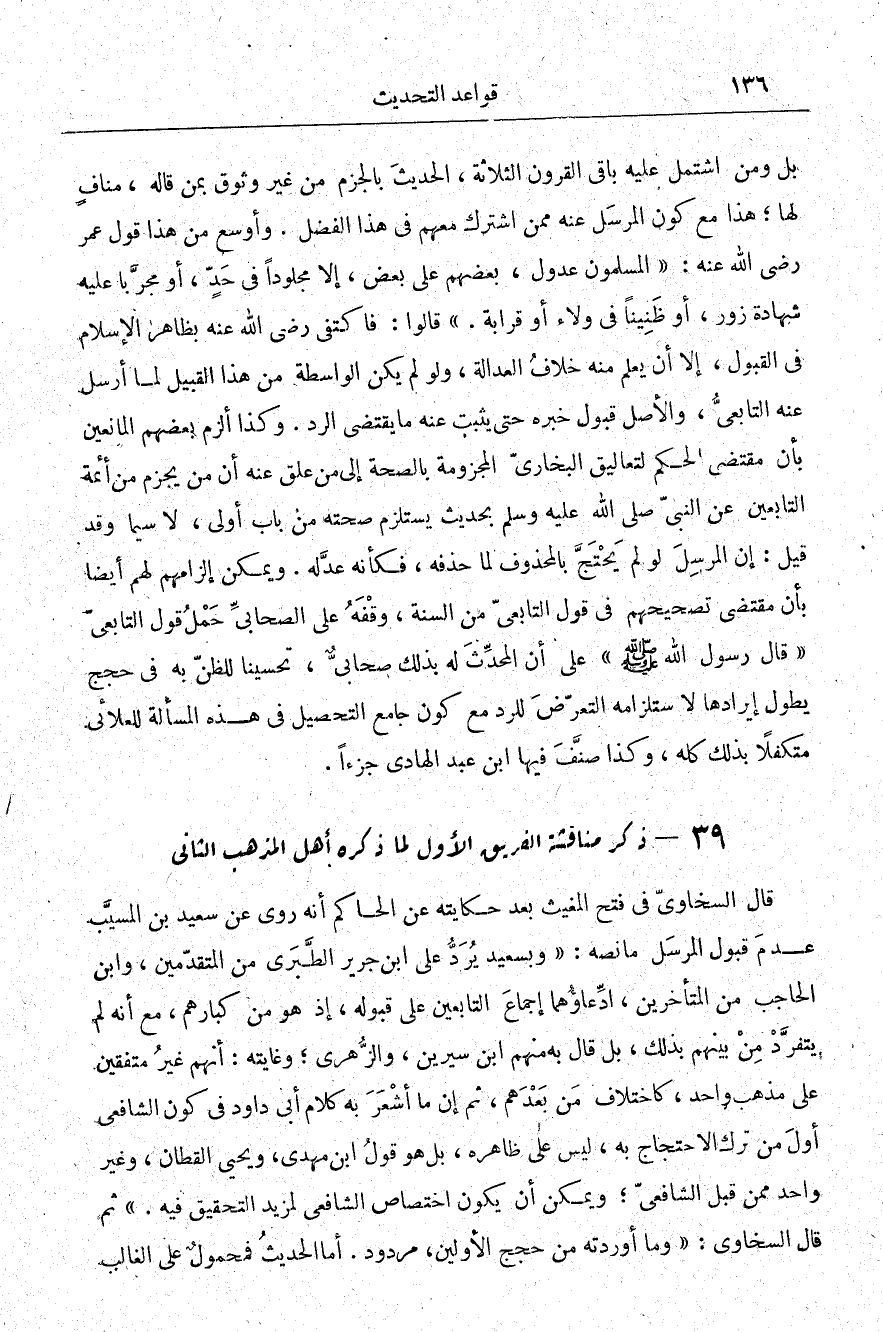 ١٣٦
قواعد التحديث
بل ومن اشتمل عليه باقى القرون الثلاثة ، الحديثَ بالجزم من غير وثوق بمن قاله ، منافٍ
لها ؛ هذا مع كون المرسَل عنه ممن اشترك معهم فى هذا الفضل . وأوسع من هذا قول عمر
رضى الله عنه : « المسلمون عدول ، بعضهم على بعض ، إلا مجلوداً فى حَدٍّ ، أو مجرَّبا عليه
شهادة زور ، أو ظَنِيناً فى ولاء أو قرابة . » قالوا : فاكتفى رضى الله عنه بظاهر الإسلام
فى القبول ، إلا أن يعلم منه خلافُ العدالة ، ولو لم يكن الواسطة من هذا القبيل لمـا أرسل
عنه التابعىُّ ، والأصل قبول خبره حتى يثبت عنه مايقتضى الرد . وكذا ألزم بعضهم المانعين
بأن مقتضى الحـكم لتعاليق البخارىّ المجزومة بالصحة إلى من علق عنه أن من يجزم من أئمة
التابعين عن النبىّ صلى الله عليه وسلم بحديث يستلزم صحته من باب أولى ، لا سيما وقد
قيل : إن المرسِلَ لو لم يَحْتَجَّ بالمحذوف لما حذفه ، فـكأنه عدَّله . ويمـكن إلزامهم لهم أيضا
بأن مقتضى تصحيحهم فى قول التابعىّ من السنة ، وقْفَهُ على الصحابىِّ حَمْلُ قول التابعىّ
« قال رسول الله ﷺ » على أن المحدِّثَ له بذلك صحابىٌّ ، تحسينا للظنّ به فى حجج
يطول إيرادها لا ستلزامه التعرّضَ للرد مع كون جامع التحصيل فى هـذه المسألة للعلائى
متكفلًا بذلك كله ، وكذا صنَّفَ فيها ابن عبد الهادى جزءاً .
٣٩ – ذكر مناقشة الفريق الأول لما ذكره أهل المذهب الثانى
قال السخاوىّ فى فتح المغيث بعد حـكايته عن الحـاكم أنه روى عن سعيد بن المسيَّب
عـدمَ قبول المرسَل مانصه : « وبسعيد يُرَدُّ على ابن جرير الطَّبَرَى من المتقدّمين ، وابن
الحاجب من المتأخرين ، ادِّعاؤُهما إجماعَ التابعين على قبوله ، إذ هو من كبارهم ، مع أنه لم
يتفرَّدْ مِنْ بينهم بذلك ، بل قال به منهم ابن سيرين ، والزُّهرى ؛ وغايته : أنهم غيرُ متفقين
على مذهب واحد ، كاختلاف مَن بَعْدَهم ، ثم إن ما أشْعَرَ به كلام أبى داود فى كون الشافعى
أولَ من ترك الاحتجاج به ، ليس على ظاهره ، بل هو قولُ ابن مهدى، ويحيى القطان ، وغير
واحد ممن قبل الشافعىّ ؛ ويمـكن أن يكون اختصاص الشافعى لمزيد التحقيق فيه . » ثم
قال السخاوى : « وما أوردته من حجج الأولين، مردود . أما الحديثُ فمحمولٌ على الغالب